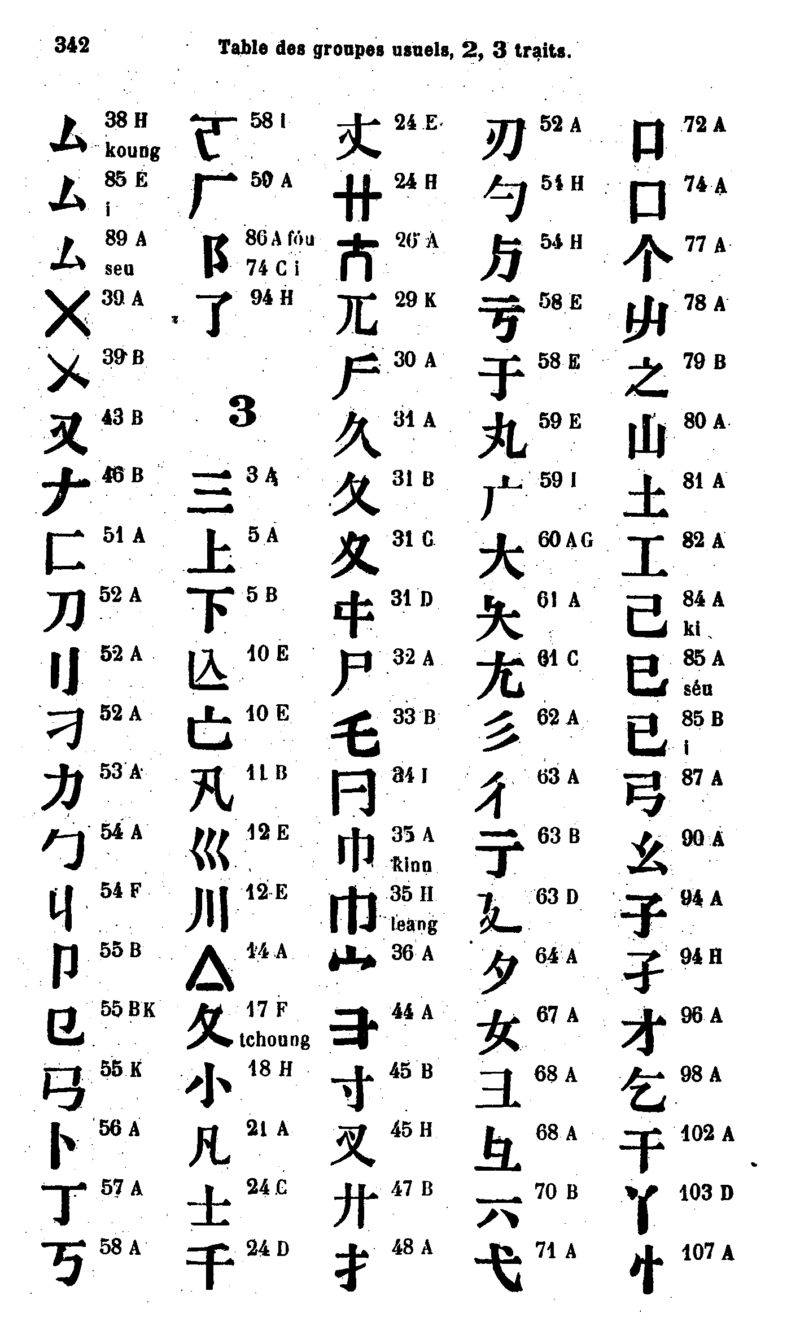 342 Table des groupes usuels, 2, 3 traits.
厶 38 H
koung
厶 85 E
i
厶 89 A
seu
39 A
乂 39 B
43 B
46 B
匚 51 A
刀 52 A
刂 52 A
刁 52 A
力 53 A
勹 54 A
丩 54 F
卩 55 B
㔾 55 BK
55 K
卜 56 A
丁 57 A
丂 58 A
58 I
厂 59 A
阝 86 A fóu
74 C i
了 94 H
3
三 3 A
上 5 A
下 5 B
亾 10 E
亡 10 E
11 B
巛 12 E
川 12 E
△ 14 A
夂 17 F
tchoung
小 18 H
凡 21 A
士 24 C
千 24 D
丈 24 E
卄 24 H
26 A
兀 29 K
30 A
久 31 A
夂 31 B
31 C
㐄 31 D
尸 32 A
乇 33 B
34 I
巾 35 A
kinn
35 H
leang
36 A
彐 44 A
寸 45 B
叉 45 H
廾 47 B
扌 48 A
刃 52 A
勺 54 H
54 H
亏 58 E
于 58 E
丸 59 E
广 59 I
大 60 A G
61 A
尢 61 C
彡 62 A
彳 63 A
亍 63 B
廴 63 D
夕 64 A
女 67 A
彑 68 A
68 A
70 B
弋 71 A
口 72 A
囗 74 A
个 77 A
屮 78 A
之 79 B
山 80 A
土 81 A
工 82 A
己 84 A
ki
巳 85 A
séu
已 85 B
i
弓 87 A
幺 90 A
子 94 A
孑 94 H
才 96 A
乞 98 A
干 102 A
丫 103 D
丬 107 A